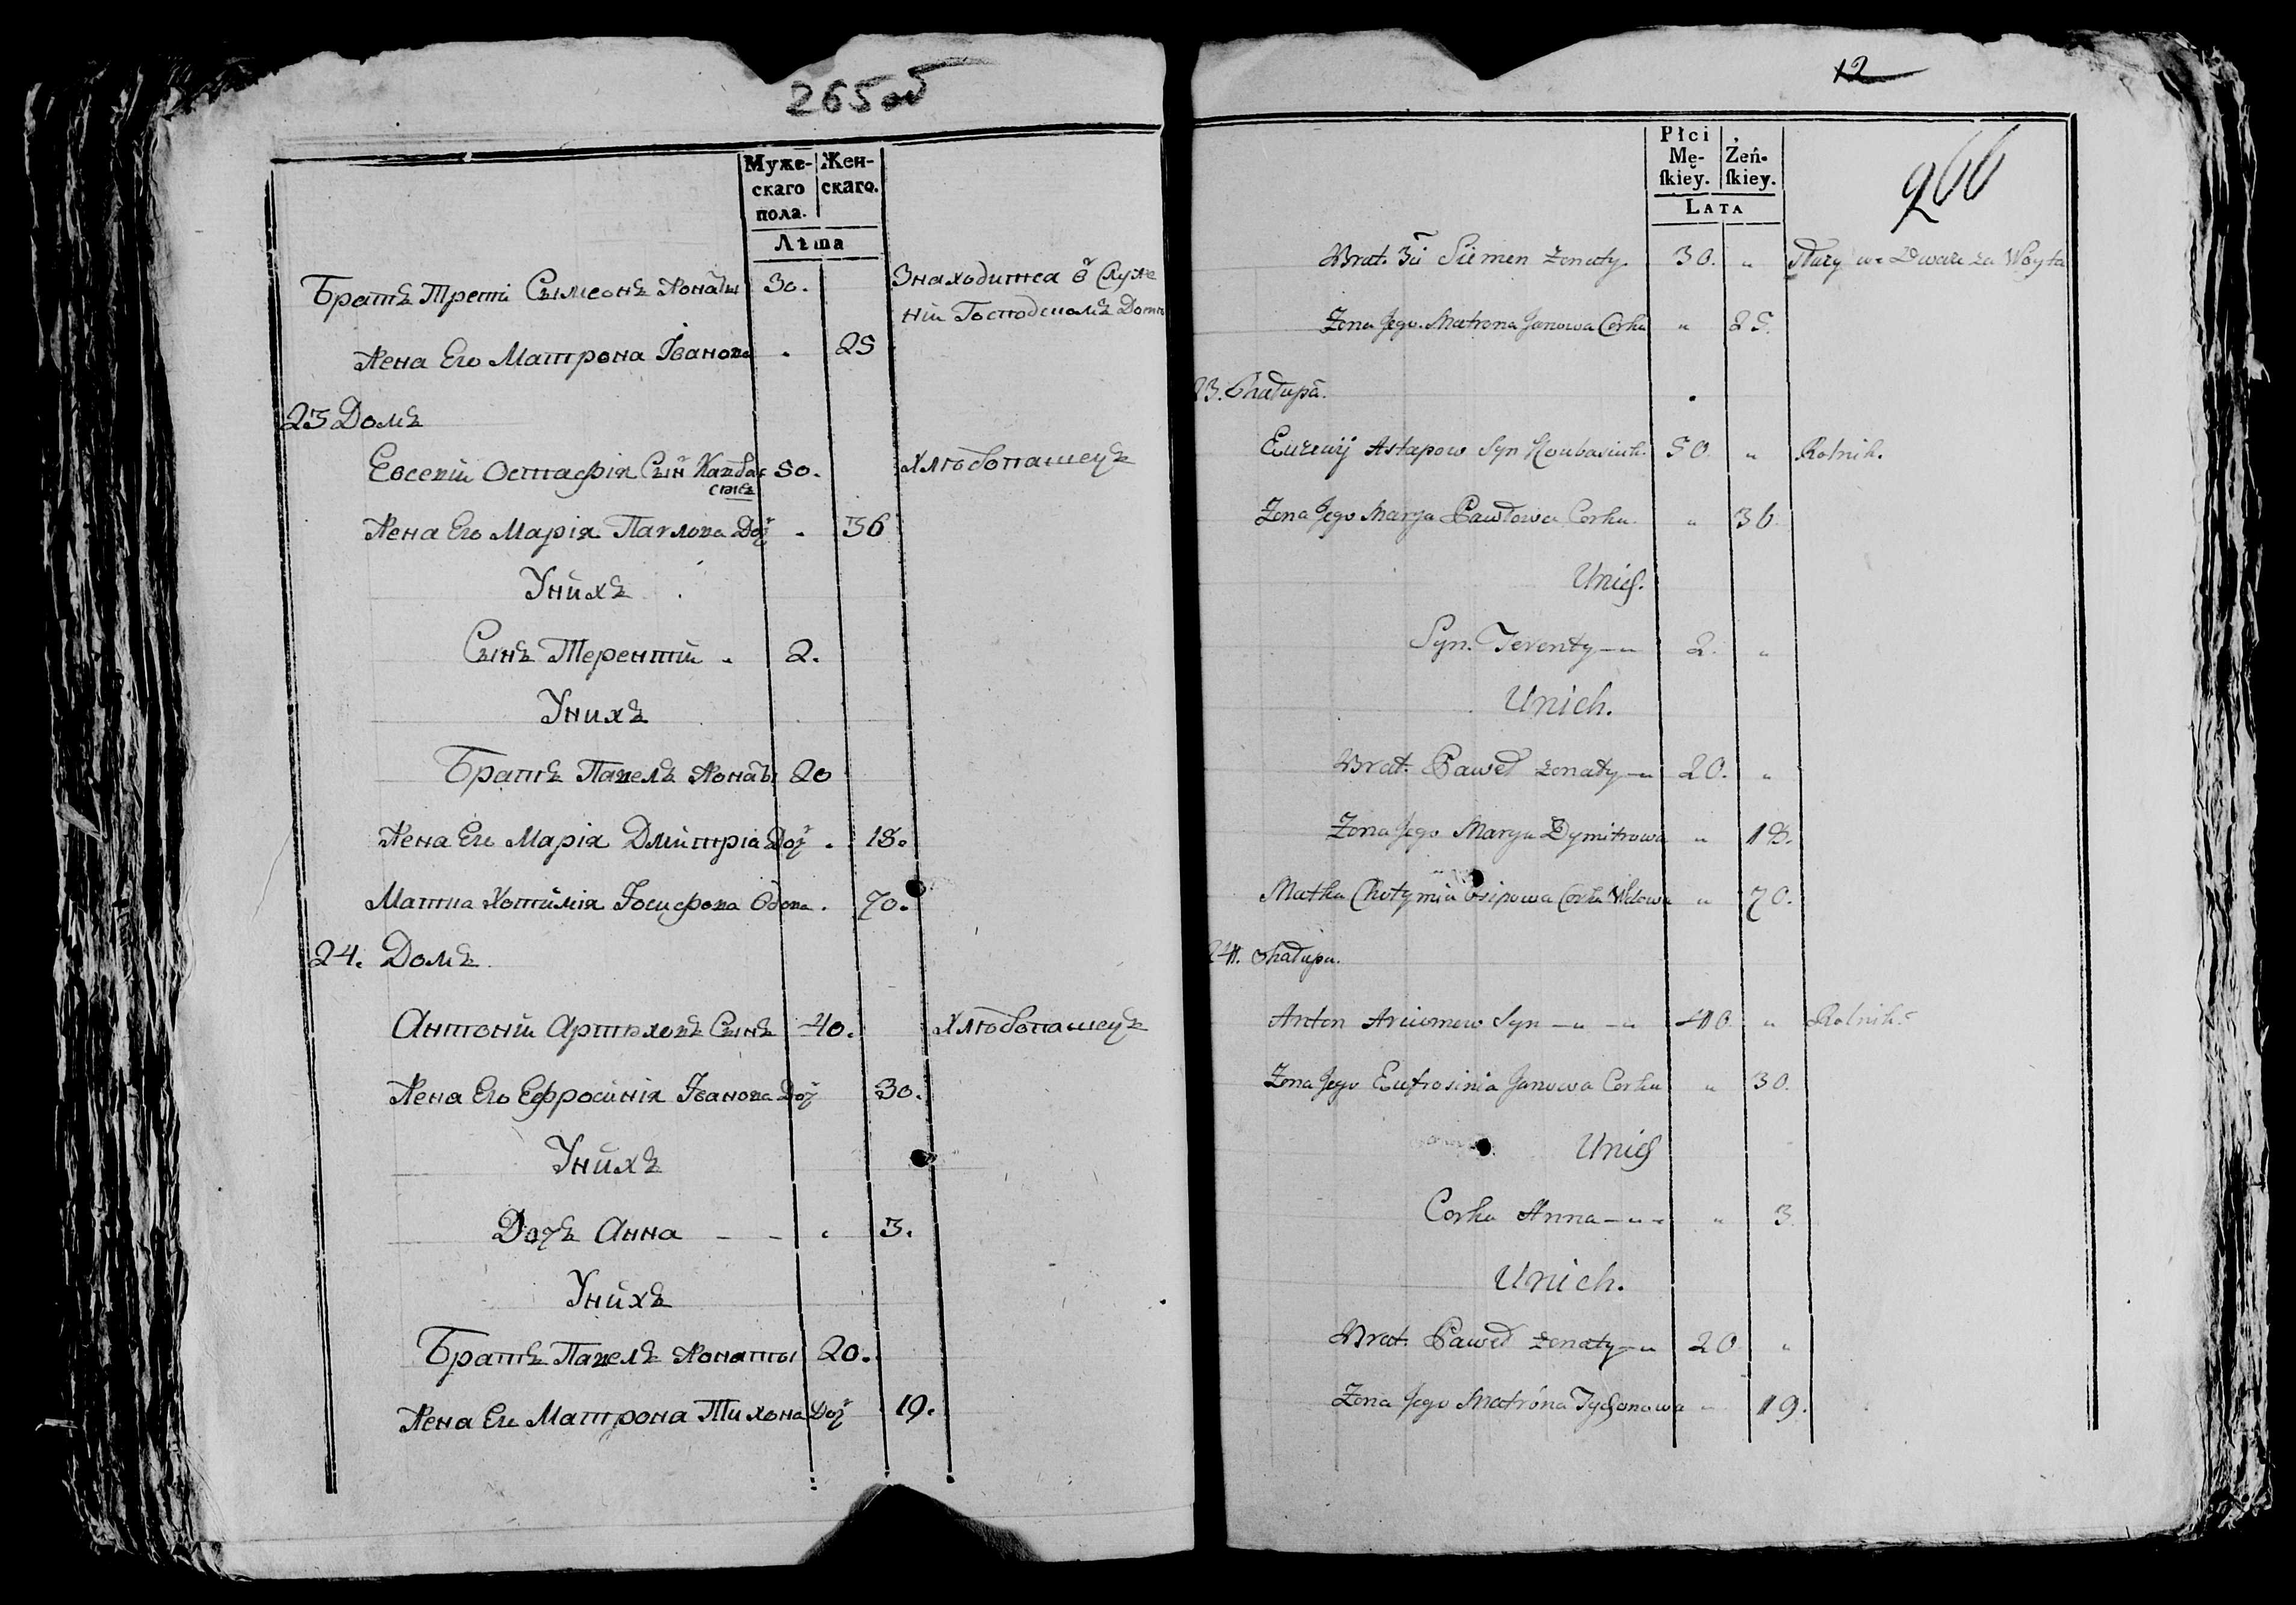 265 об
Муже- Жен-
скаго скаго.
пола.
Лѣта
Братъ Трети Сымеонъ Жонаты 30. Знаходитса в Служе
нiи Господскомъ Дому
Жена Его Матрона Іванова . 25
23 Домъ
Евсевiй Остафiя Сын 50. Хлѣбопашецъ
Жена Его Марiя Павлова Доч . 36
У них
Сынъ Терентiй . 2.
У нихъ
Братъ Павелъ Жонаты 20
Жена Его Марiя Дмитрiа Доч . 18.
Матка Хотимiя Іосифова Вдова . 70.
24. Домъ
Антонiй Артюховъ Сынъ 40. Хлѣбопашецъ
Жена Его Ефросинiя Іванова Доч 30.
У нихъ
Дочъ Анна - - . 3.
У нихъ
Братъ Павелъ Жонаты 20.
Жена Его Матрона Тихона Доч 19.
12
266
Płci
Mę- Żeń-
ſkiey. ſkiey.
LATA
Brat 3ci Siemen żonaty 30. " Służy we Dworze za Woyta
Żona Jego Matrona Janowa Corka " 25.
23. Chałupa.
Astapow Syn 50. " Rolnik.
Żona Jego Marya Pawłowa Corka " 36
Unich.
Syn Terenty 2. "
Unich.
Brat Paweł żonaty 20. "
Żona Jego Marya Dymitrowa " 18.
Matka Chotymia Osipowa Corka Wdowa " 70.
24. Chałupa.
Anton Arciomow Syn 40 " Rolnik.
Żona Jego Eufrosinia Janowa Corka " 30.
Unich
Corka Anna " 3
Unich.
Brat Paweł żonaty 20 "
Żona Jego Matróna Tychonowa " 19.